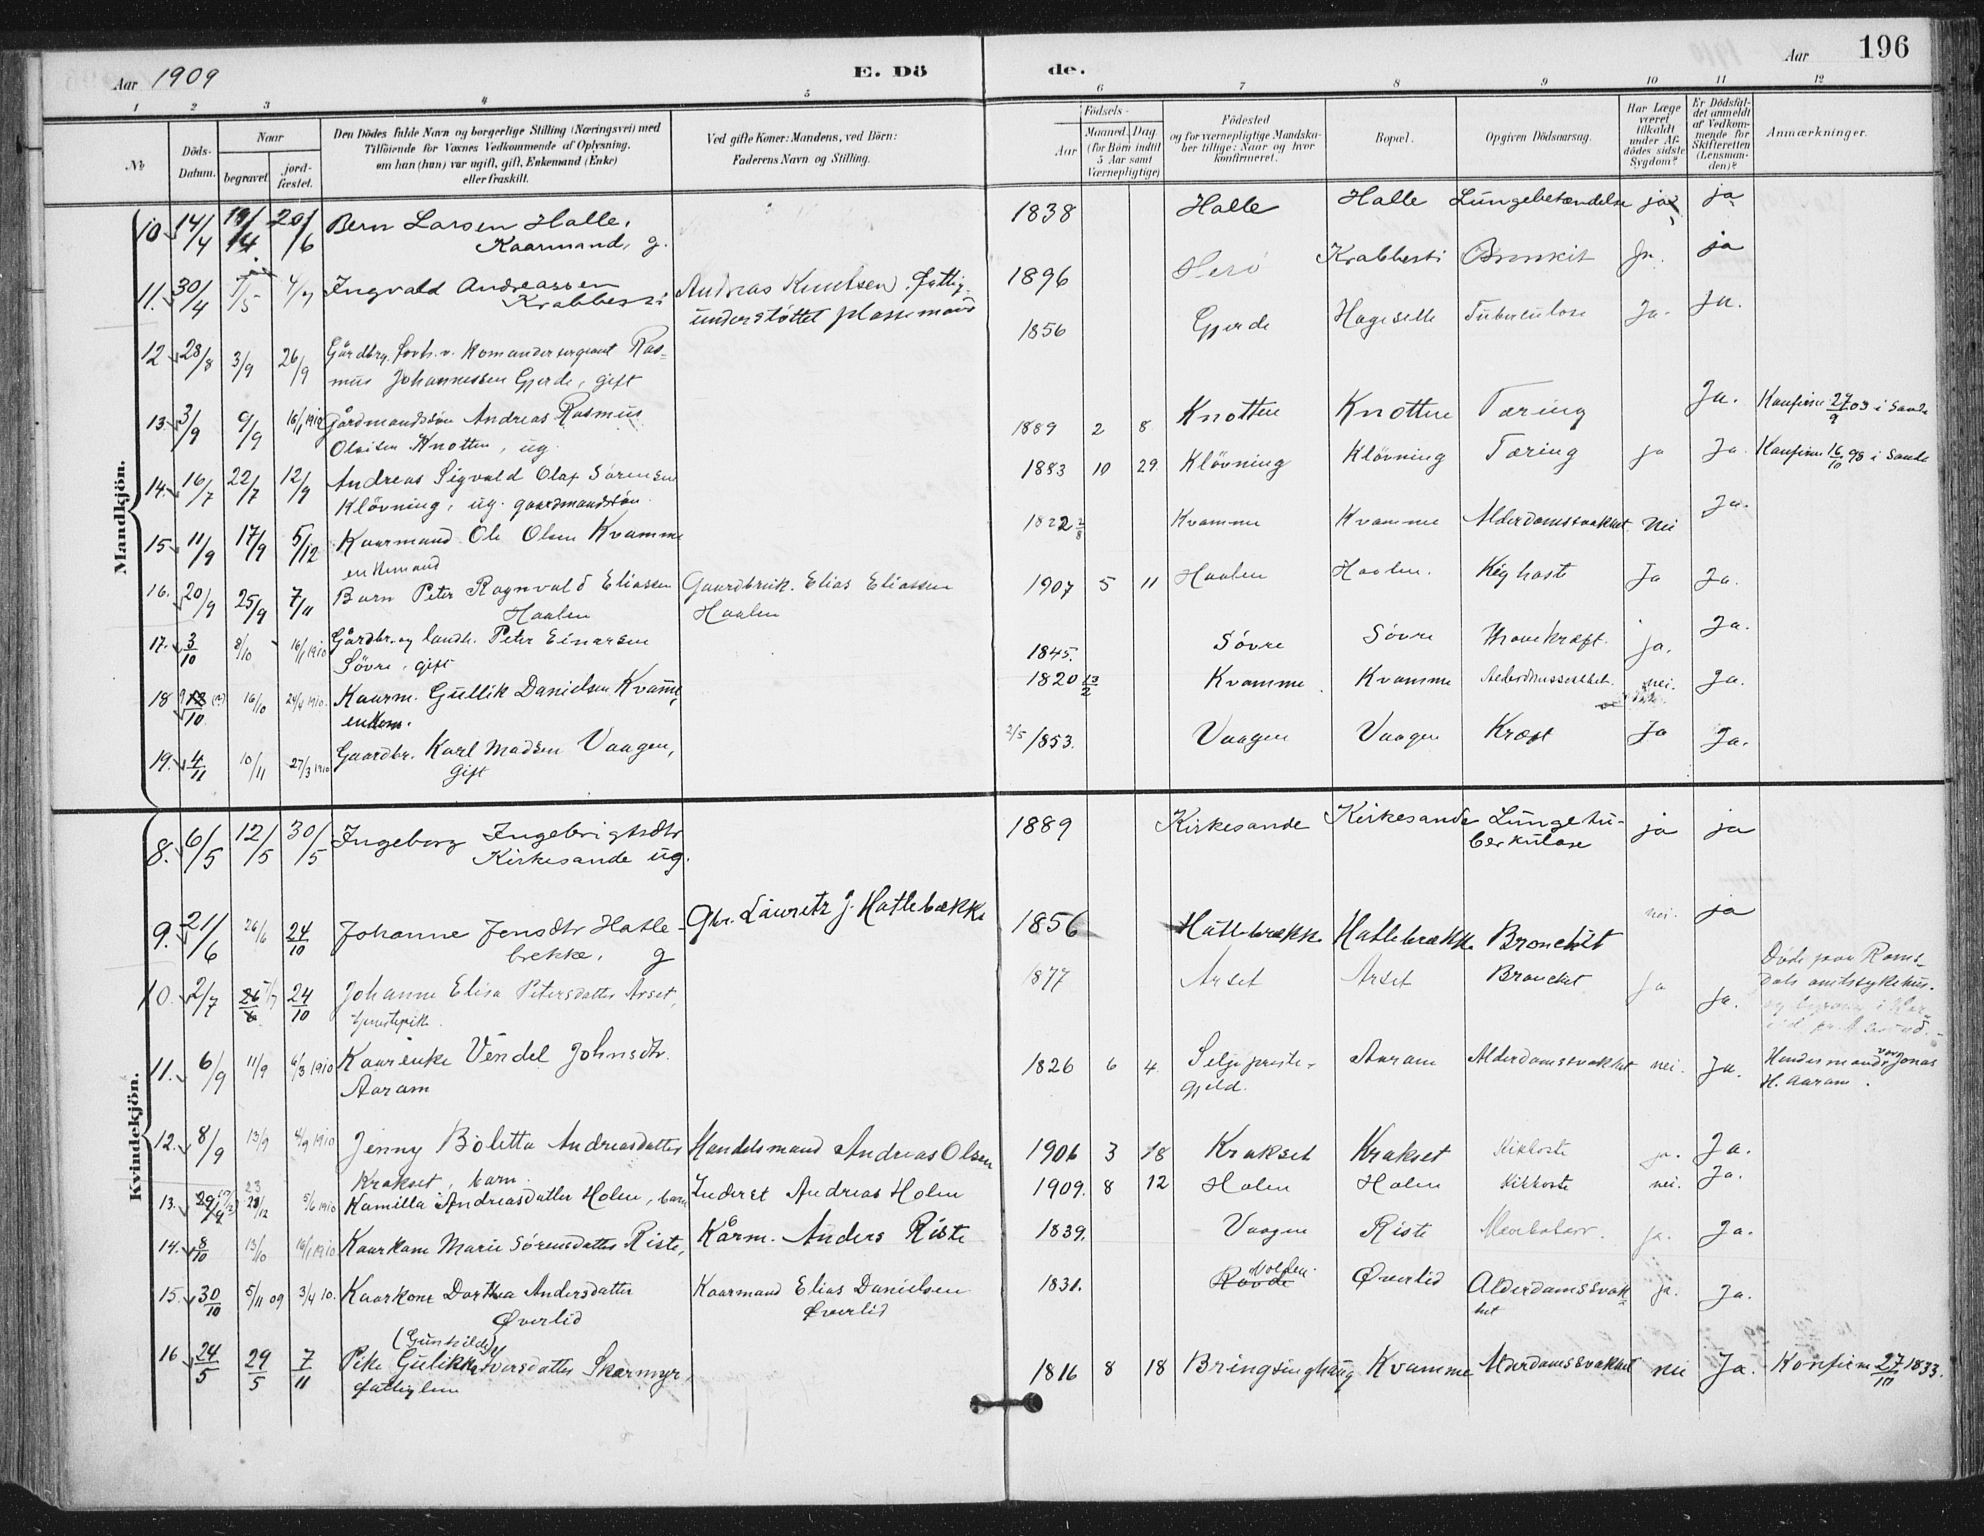 Aar 1909
E. Dö
de.
Aar
196
1 2 3 4 5 6 7 8 9 10 11 12
№ Döds-Datum. Naar begravet jordfæstet. Den Dödes fulde Navn og borgerlige Stilling (Næringsvei) med Tilföiende for Voxnes Vedkommende af Oplysning. om han (hun) var ugift, gift, Enkemand (Enke) eller fraskilt. Ved gifte Koner: Mandens, ved Börn: Faderens Navn og Stilling. Födsels- Aar Maaned. Dag. (for Börn indtil 5 Aar samt Værnepligtige) Födested og for værnepligtige Mandskaber tillige: Naar og hvor konfirmeret. Bopæl. Opgiven Dödsaarsag. Har Læge været tilkaldt under Afdödes sidste Sygdom? Er Dödsfaldet anmeldt af Vedkommende for Skifteretten (Lensmanden)? Anmærkninger.
Mandkjön.
10 14/4 19/4 20/6 Bern Larsen Halle, 1838 Halle Halle Lungebetændelse ja ja
Kaarmand, g.
11. 30/4 7/5 4/7 Ingvald Andreassen Andreas Knutsen, fattig- 1896 Herö Krabbesti Bronkit Ja. ja
Krabbesti understøttet plassemand
12 28/8 3/9 26/9 Gårdbrg. forh. v. Komandersergeant Ras- 1856 Gjerde Hageselle Tuberculose Ja. Ja.
mus Johannessen Gjerde, gift
13. 3/9 9/9 16/1 1910 Gårdmandssön Andreas Rasmus 1889 2 8 Knotten Knotten Tæring Ja. Konfirm 27/9 03 i Sande
Olsisen Knotten, ug.
14. 16/7 22/7 12/9 Andreas Sigvald Olaf Sørensen 1883 10 29 Klövning Klövning Tæring ja Ja. Konfirm 16/10 98 i Sande
Klövning, ug. gaardmandssön.
15 11/9 17/9 5/12 Kaarmand Ole Olsen Kvamme 1822 2/8 Kvamme Kvamme Alderdomssvakhet nei Ja.
enkemand
16. 20/9 25/9 7/11 Barn Peter Ragnvald Eliassen Gaardbruk. Elias Eliassen 1907 5 11 Haalen Haalen. Kighoste Ja Ja.
Haalen Haalen
17. 3/10 8/10 16/1 1910 Gårdbr. og landh. Peter Einarsen 1845. Søvre Søvre Mavekræft. ja. Ja.
Søvre, gift
18 13/10 16/10 24/4 1910. Kaarm. Gullik Danielsen Kvamme, 1820 13/2 Kvamme Kvamme nei. Ja.
enkem.
19. 4/11 10/11 27/3 1910 Gaardbr. Karl Madsen Vaagen, 2/5 1853. Vaagen Vaagen Kræft Ja Ja.
Gift
Kvindekjön.
8. 6/5 12/5 30/5 Ingeborg Ingebrigtsdtr 1889 Kirkesande Kirkesande Lungetu- ja ja
Kirkesande ug. berkulose
9. 21/6 26/6 24/10 Johanne Jensdtr Hatle- Gbr. Lauretz J. Hatlebække 1856 Hatlebrække Hatlebrække Bronchit nei. ja
brekke, g
10. 2/7 24/10 Johanne Elisa Petersdatter Arset, 1877 Arset Arset Bronchit Ja Ja. Döde paa Roms-
dals amtssykehus.
11. 6/9 11/9 6/3 1910 Kaarenke Vendel Johnsdtr. 1826 6 4. Selje preste- Aaram Alderdomssvakhet nei. Ja. Hendes mand var Jonas
Aaram gjeld. H. Aaram.
12. 8/9 13/9 4/9 1910 Jenny Boletta Andreasdatter Handelsmand Andreas Olsen 1906 3 18 Krakset Krakset Kikhoste ja. Ja.
Krakset, barn.
13. 29/9 5/6 1910 Kamilla Andreasdatter Holen, barn Inderst Andreas Holen 1909. 8 12 Holen Holen Kikhoste nei. Ja.
14. 8/10 13/10 16/1 1910 Kaarkone Marie Sørensdatter Riste, Kårm. Anders Riste 1839. Vaagen Riste ja. Ja.
15. 30/10 5/11 09 3/4 10. Kaarkone Dorthea Andersdatter Kaarmand Elias Danielsen 1831. Rovde Volden. Øverlid Alderdomssvak- ja. Ja.
Øverlid Øverlid het
(Gunhilde)
16 24/5 29/5 7/11 Pike Gulikka Iversdatter Skarmyr, 1816 8 18 Bringsinghaug Kvamme Alderdomssvakhet nei Ja. Konfirm 27/10 1833.
fattiglem